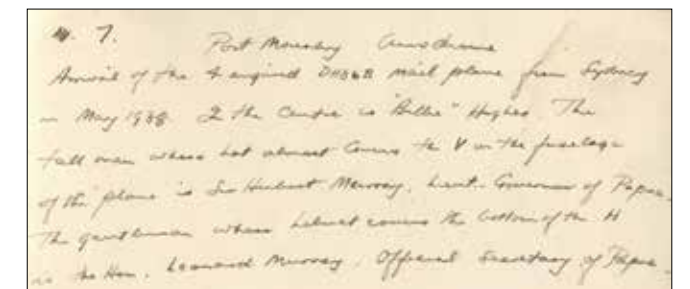 7.
Port Moresby Aerodrome
Arrival of the 4 engined DH86B mail plane from Sydney
in May 1938. In the Centre is "Billie" Hughes. The
tall man whose hat almost covers the V in the fuselage
of the plane is Sir Hubert Murray, Lieut.-Governor of Papua.
The gentleman whose helmet covers the bottom of the H
is the Hon. Leonard Murray, Official Secretary of Papua.